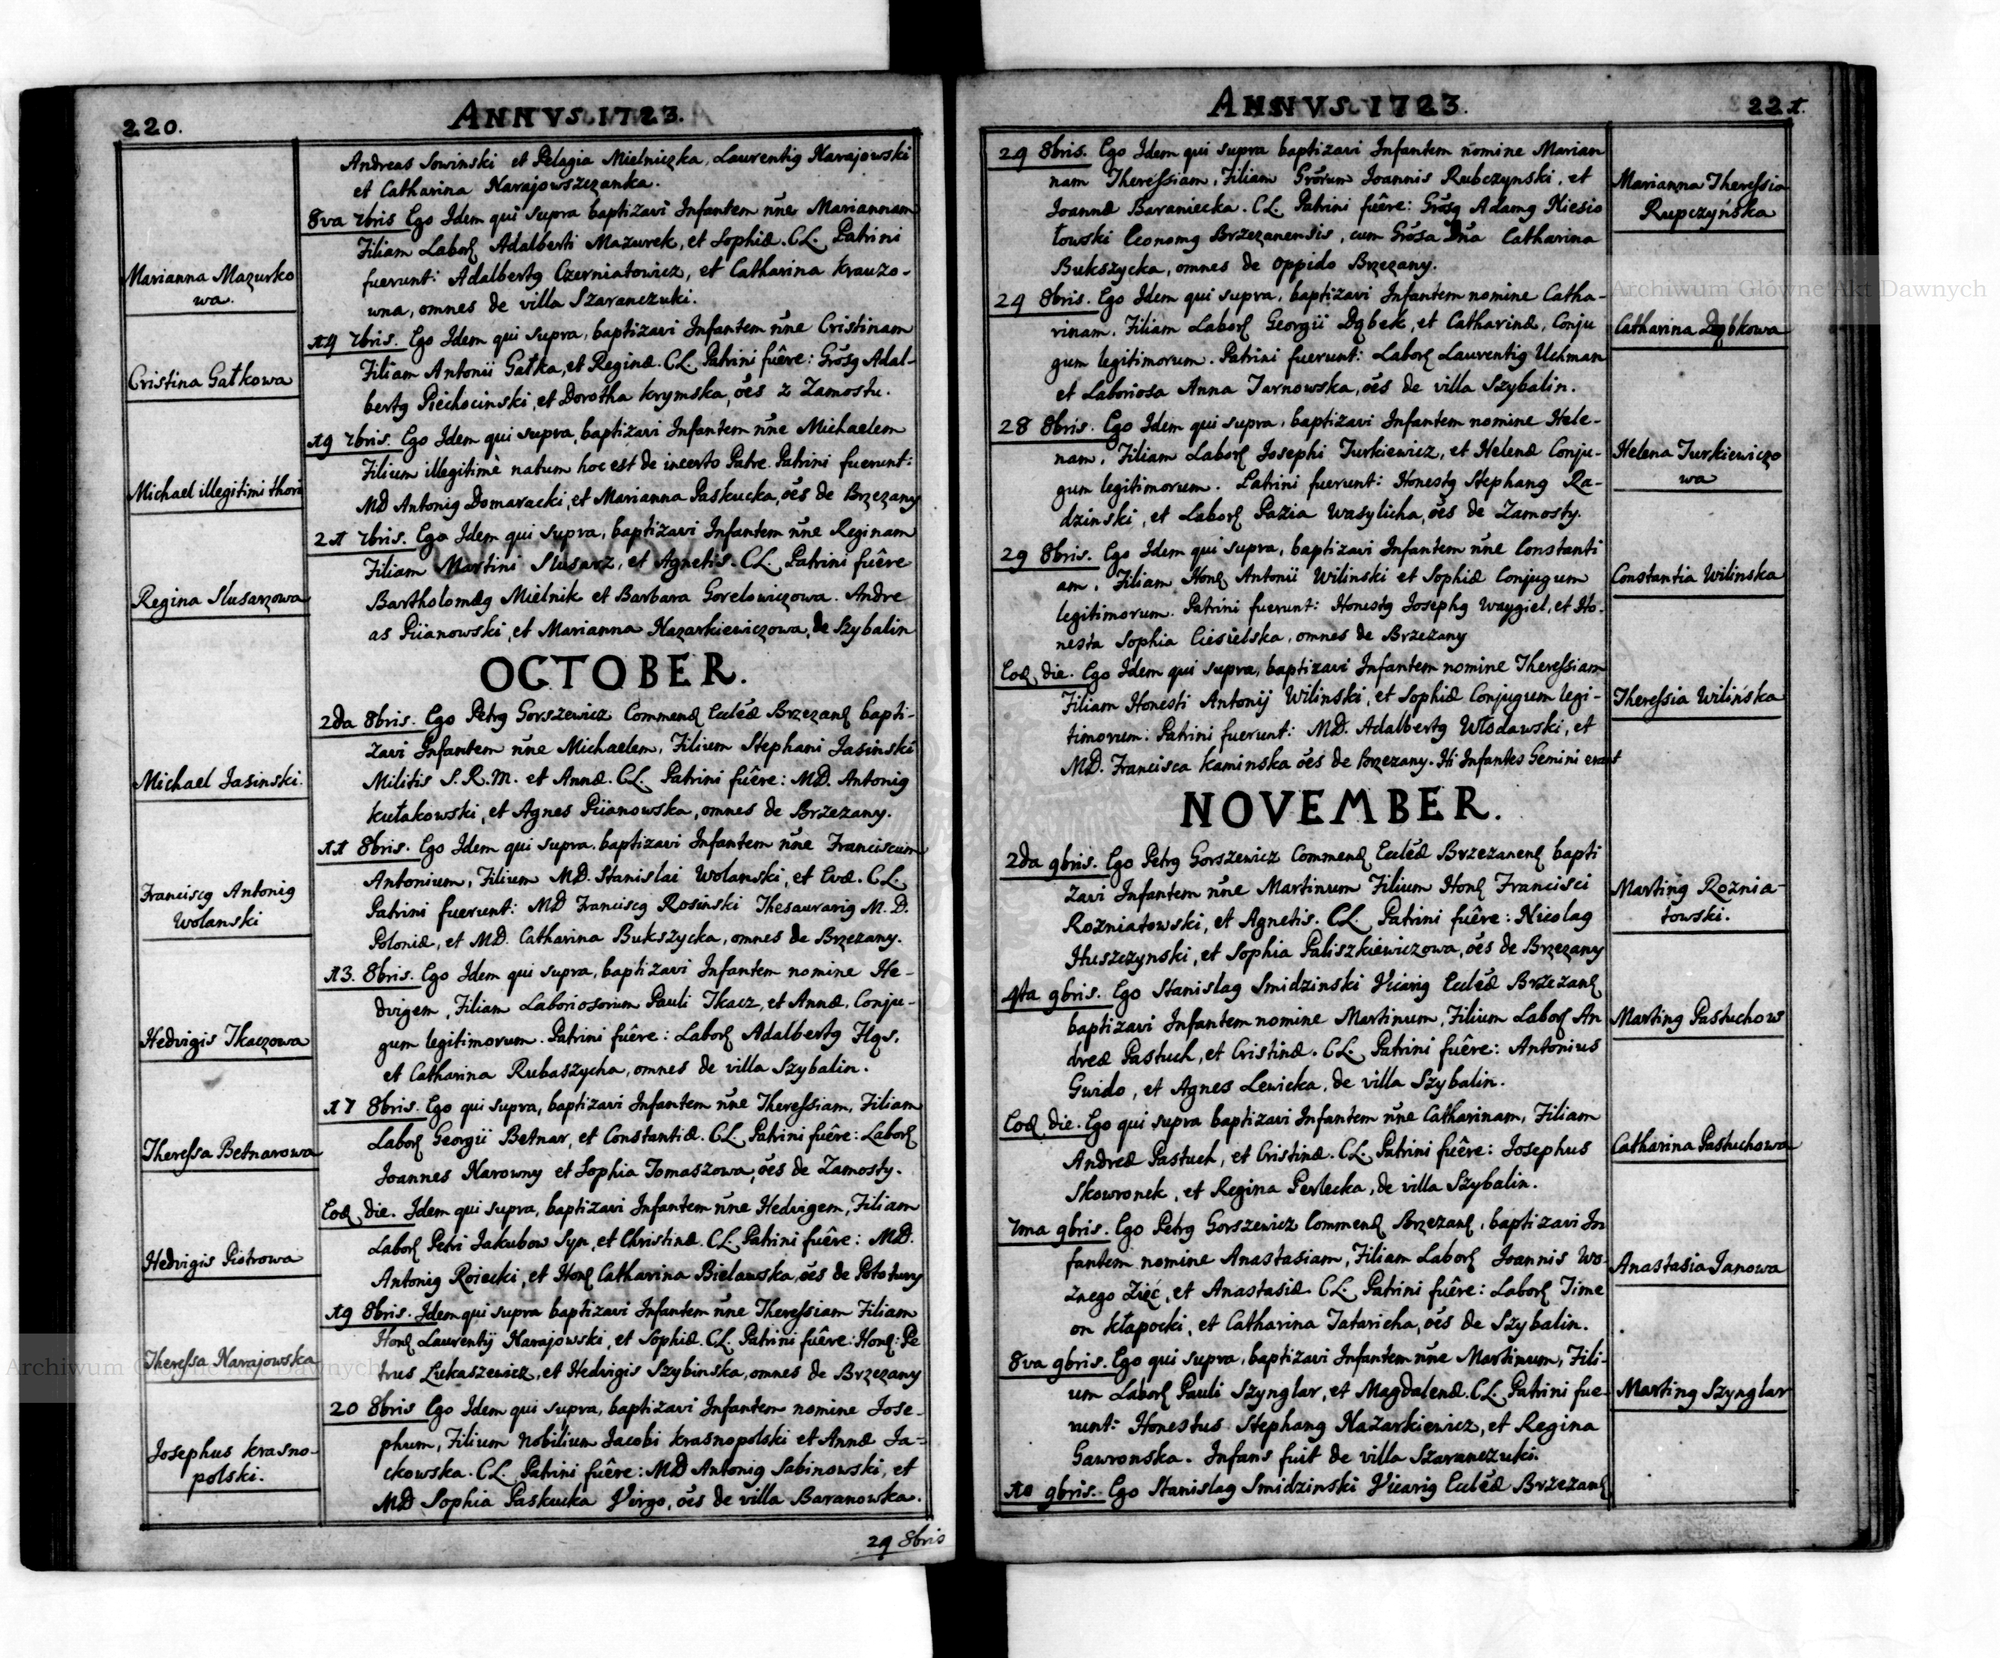 220.
ANNVS. 1723.
Andreas Sowinski et Pelagia Mielniczka, Laurentig Narajowski
et Catharina Narajowszczanka.
Marianna Mazurko
wa.
8va 7bris Ego Idem qui supra baptizavi Infantem nn̄e Mariannam
Filiam Laborꝭ Adalberti Mazurek, et Sophiæ. CL. Patrini
fuerunt: Adalbertg Czerniatowicz, et Catharina Krauzo-
wna, omnes de villa Szaranczuki.
Cristina Gałkowa
14 7bris. Ego Idem qui supra, baptizavi Infantem nn̄e Cristinam
Filiam Antonii Gałka, et Reginæ. CL. Patrini fuêre: Grōsg Adal-
bertg Piechocinski, et Dorotha Krymska, ōēs z Zamostu.
Michael illegitimi thori
19 7bris. Ego Idem qui supra, baptizavi Infantem nn̄e Michaelem
Filium illegitimè natum hoc est de incerto Patre. Patrini fuerunt:
MD Antonig Domaracki, et Marianna Paskucka, ōēs de Brzezany
Regina Slusarzowa
21 7bris. Ego Idem qui supra, baptizavi Infantem nn̄e Reginam
Filiam Martini Slusarz, et Agnetis. CL. Patrini fuêre
Bartholomæg Mielnik et Barbara Gorelowiczowa. Andre
as Piianowski, et Marianna Nazarkiewiczowa, de Szybalin
OCTOBER.
Michael Jasinski.
2da 8bris. Ego Petrg Gorszewicz Commendꝭ Eccłæ Brzezanꝭ bapti-
zavi Infantem nn̄e Michaelem, Filium Stephani Jasinski
Militis S. R. M. et Annæ. CL. Patrini fuêre: MD. Antonig
Kułakowski, et Agnes Piianowska, omnes de Brzezany.
Franciscg Antonig
Wolanski
11 8bris. Ego Idem qui supra, baptizavi Infantem nn̄e Franciscum
Antonium, Filium MD. Stanislai Wolanski, et Evæ. CL.
Patrini fuerunt: MD Franciscg Rosinski Thesaurarig M. D.
Poloniæ, et MD. Catharina Bukszycka, omnes de Brzezany.
Hedvigis Tkaczowa
13. 8bris. Ego Idem qui supra, baptizavi Infantem nomine He-
dvigem, Filiam Laboriosorum Pauli Tkacz, et Annæ, Conju-
gum legitimorum. Patrini fuêre: Laborꝭ Adalbertg Hąs,
et Catharina Rubaszycha, omnes de villa Szybalin.
Theressa Betnarowa
17 8bris. Ego qui supra, baptizavi Infantem nn̄e Theressiam, Filiam
Laborꝭ Georgii Betnar, et Constantiæ. CL. Patrini fuêre: Laborꝭ
Joannes Narowny et Sophia Tomaszowa, ōēs de Zamosty.
Hedvigis Piotrowa
Eoꝭ die. Idem qui supra, baptizavi Infantem nn̄e Hedvigem, Filiam
Laborꝭ Petri Jakubow Syn, et Christinæ. CL. Patrini fuêre: MD.
Antonig Roiecki, et Honꝭ Catharina Bielawska, ōēs de Potutury
Theressa Narajowska
19 8bris. Idem qui supra baptizavi Infantem nn̄e Theressiam Filiam
Honꝭ Laurentij Narajowski, et Sophiæ. CL. Patrini fuêre: Honꝭ: Pe
trus Lukaszewicz, et Hedvigis Szybinska, omnes de Brzezany
Josephus Krasno-
polski.
20 8bris Ego Idem qui supra, baptizavi Infantem nomine Jose-
phum, Filium Nobilium Jacobi Krasnopolski et Annæ Ja-
ckowska. CL. Patrini fuêre: MD Antonig Sabinowski, et
MD Sophia Paskucka Virgo, ōēs de villa Baranowska.
24 8bris
ANNVS. 1723.
221.
24 8bris. Ego Idem qui supra baptizavi Infantem nomine Marian
nam Theressiam, Filiam Grōrum Joannis Rubczynski, et
Joannæ Baraniecka. CL. Patrini fuêre: Grōsg Adamg Niesio
łowski Economg Brzezanensis, cum Grōsa Dn̄a Catharina
Bukszycka, omnes de oppido Brzezany.
Marianna Theressia
Rupczyńska
24 8bris. Ego Idem qui supra, baptizavi Infantem nomine Catha-
rinam, Filiam Laborꝭ Georgii Dąbek, et Catharinæ, Conju
gum legitimorum. Patrini fuerunt: Laborꝭ Laurentig Uchman
et Laboriosa Anna Tarnowska, ōēs de villa Szybalin.
Catharina Dąbkowa
28 8bris. Ego Idem qui supra, baptizavi Infantem nomine Hele-
nam, Filiam Laborꝭ Josephi Turkiewicz, et Helenæ Conju-
gum legitimorum. Patrini fuerunt: Honestg Stephang Ra-
dzinski, et Laborꝭ Pazia Wasylicha, ōēs de Zamosty.
Helena Turkiewiczo
wa
29 8bris. Ego Idem qui supra, baptizavi Infantem nn̄e Constanti
am, Filiam Honꝭ Antonii Wilinski et Sophiæ Conjugum
legitimorum. Patrini fuerunt: Honestg Josephg Waygiel, et Ho-
nesta Sophia Ciesielska, omnes de Brzezany
Constantia Wilinska
Eoꝭ die. Ego Idem qui supra, baptizavi Infantem nomine Theressiam
Filiam Honesti Antonij Wilinski, et Sophiæ Conjugum legi-
timorum. Patrini fuerunt: MD. Adalbertg Włodawski, et
MD. Francisca Kaminska ōēs de Brzezany. Hi Infantes Gemini erant
Theressia Wilińska
NOVEMBER.
2da 9bris. Ego Petrg Gorszewicz Commendꝭ Eccłæ Brzezanenꝭ bapti
zavi Infantem nn̄e Martinum Filium Honꝭ Francisci
Rozniatowski, et Agnetis. CL. Patrini fuêre: Nicolag
Huszczynski, et Sophia Paliszkiewiczowa, ōēs de Brzezany
Marting Roznia-
towski.
4ta 9bris. Ego Stanislag Smidzinski Vicarig Eccłæ Brzezanꝭ
baptizavi Infantem nomine Martinum, Filium Laborꝭ An
dreæ Pastuch, et Cristinæ. CL. Patrini fuêre: Antonius
Gwido, et Agnes Lewicka, de villa Szybalin.
Marting Pastuchow
Eoꝭ die. Ego qui supra baptizavi Infantem nn̄e Catharinam, Filiam
Andreæ Pastuch, et Cristinæ. CL. Patrini fuêre: Josephus
Skowronek, et Regina Perlecka, de villa Szybalin.
Catharina Pastuchowa
7ma 9bris. Ego Petrg Gorszewicz Commendꝭ Brzezanꝭ, baptizavi In
fantem nomine Anastasiam, Filiam Laborꝭ Joannis Wo-
znego Zięć, et Anastasiæ. CL. Patrini fuêre: Laborꝭ Time
on Kłapocki, et Catharina Tataricha, ōēs de Szybalin.
Anastasia Janowa
8va 9bris. Ego qui supra, baptizavi Infantem nn̄e Martinum, Fili-
um Laborꝭ Pauli Szynglar, et Magdalenæ. CL. Patrini fue-
runt: Honestus Stephang Nazarkiewicz, et Regina
Gawronska. Infans fuit de villa Szaranczuki.
Marting Szynglar
10 9bris. Ego Stanislag Smidzinski Vicarig Eccłæ Brzezanꝭ
Archiwum Główne Akt Dawnych
Archiwum Główne Akt Dawnych